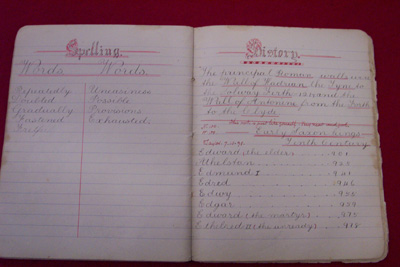 Spelling.
Words Words.
Repeatedly Uneasiness
Doubled Possible
Gradually Provisions
Fastened Exhausted
History.
The principal Roman walls were
the Wall of Hadrian the Tyne to
the Solway Firth second the
Wall of Antonine from the Forth
to the Clyde
Early Saxon Kings
Tenth Century
Edward (the elder) 901
Athelstan 925
Edmund I 941
Edred 946
Edwy
Edgar 959
Edward (the martyr) 975
Ethelred II (the unready) 978